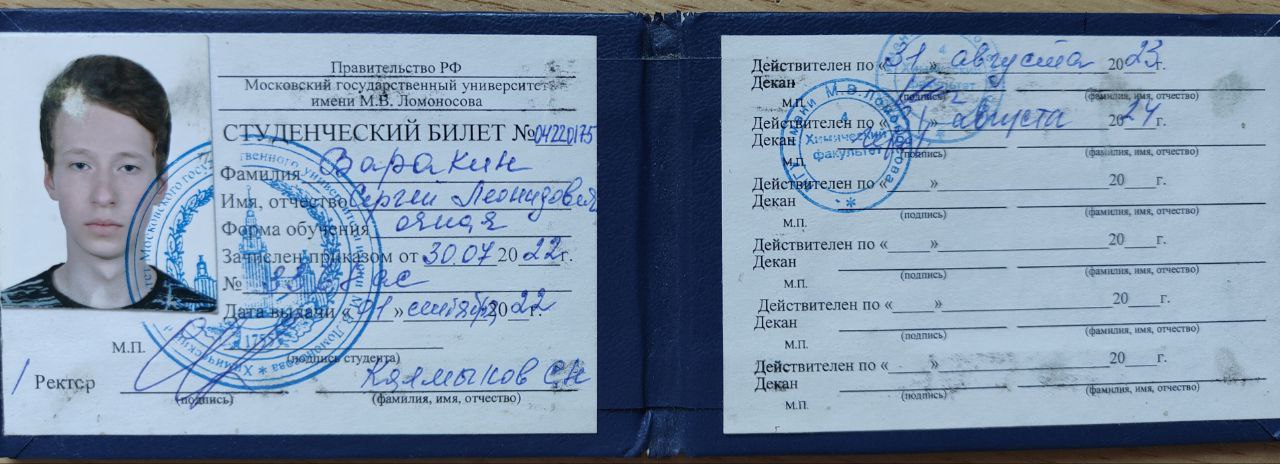 Правительство РФ
Московский государственный университет
имени М.В. Ломоносова
СТУДЕНЧЕСКИЙ БИЛЕТ № 04220175
Фамилия Варакин
Имя, отчество Сергей Леонидович
Форма обучения очная
Зачислен приказом от 30.07 2022г.
№
Дата выдачи «01» сентября 2022г.
М.П.
(подпись студента)
Ректор Калмыков С.Н
(подпись) (фамилия, имя, отчество)
1755
Действителен по «31» августа 2023г.
Декан
М.П. (подпись) (фамилия, имя, отчество)
Действителен по « » августа 2024г.
Декан
М.П. (подпись) (фамилия, имя, отчество)
имени М.В. Ломоносова
4
Химический
факультет
Действителен по « » 20 г.
Декан
М.П. (подпись) (фамилия, имя, отчество)
Действителен по « » 20 г.
Декан
М.П. (подпись) (фамилия, имя, отчество)
Действителен по « » 20 г.
Декан
М.П. (подпись) (фамилия, имя, отчество)
Действителен по « » 20 г.
Декан
М.П. (подпись) (фамилия, имя, отчество)